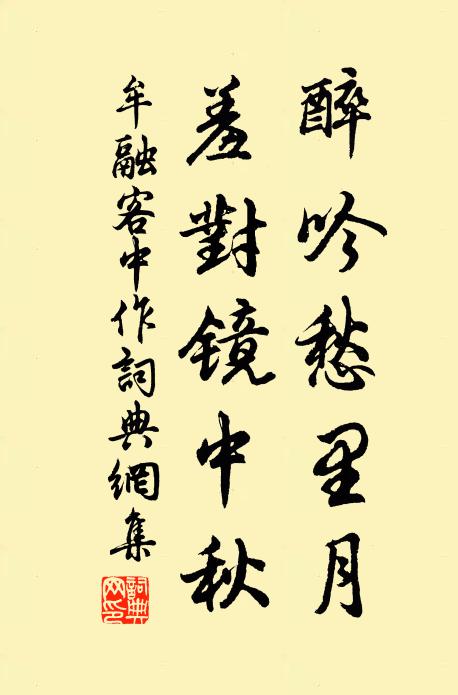 醉吟愁里月
羞對鏡中秋
牟融客中作詞典網集